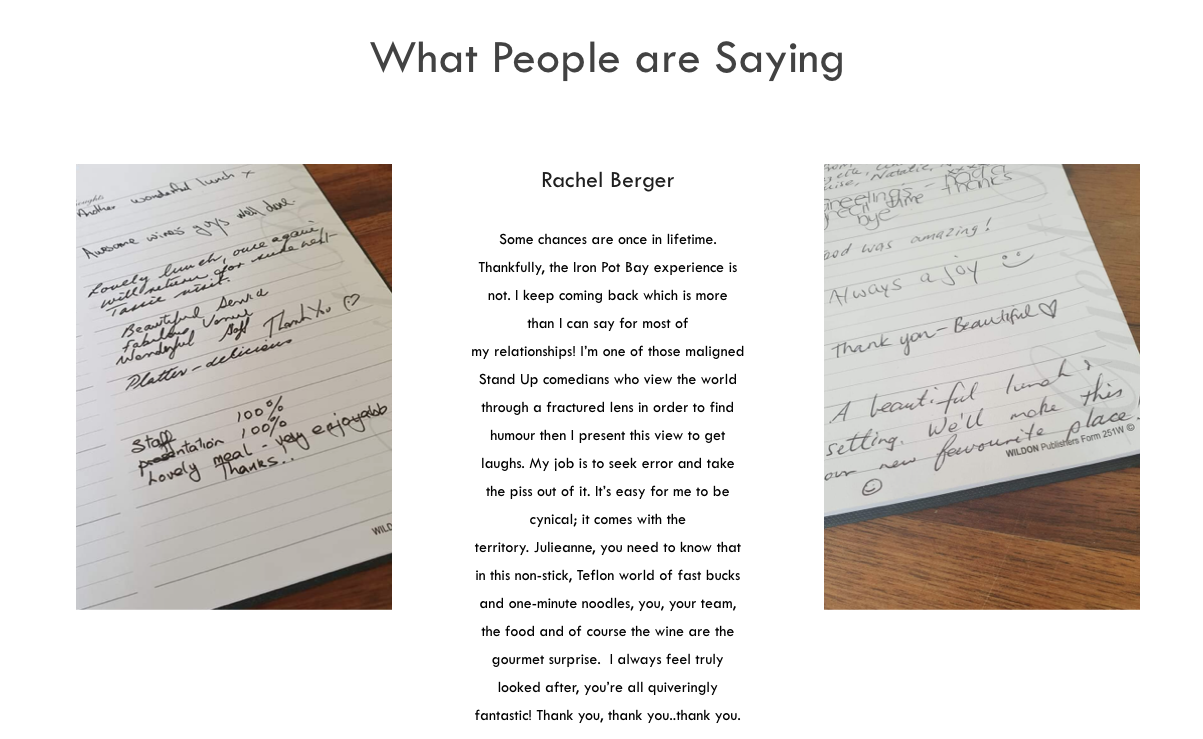 What People are Saying
Another wonderful lunch x
Awesome wines guys well done.
Lovely lunch, once again,
will return for sure next
Tassie visit.
Beautiful
Fabulous Venue
Wonderful Thank You
Platter - delicious
100%
Staff 100%
presentation
Lovely meal - very enjoyable
Thanks..
WILD
Rachel Berger
Some chances are once in lifetime.
Thankfully, the Iron Pot Bay experience is
not. I keep coming back which is more
than I can say for most of
my relationships! I'm one of those maligned
Stand Up comedians who view the world
through a fractured lens in order to find
humour then I present this view to get
laughs. My job is to seek error and take
the piss out of it. It's easy for me to be
cynical; it comes with the
territory. Julieanne, you need to know that
in this non-stick, Teflon world of fast bucks
and one-minute noodles, you, your team,
the food and of course the wine are the
gourmet surprise.  I always feel truly
looked after, you're all quiveringly
fantastic! Thank you, thank you..thank you.
Natalie
Greetings - thanks
bye
ood was amazing!
Always a joy
Thank you - Beautiful ♡
A beautiful lunch &
setting. We'll make this
our new favourite place!
WILDON Publishers Form 251W ©